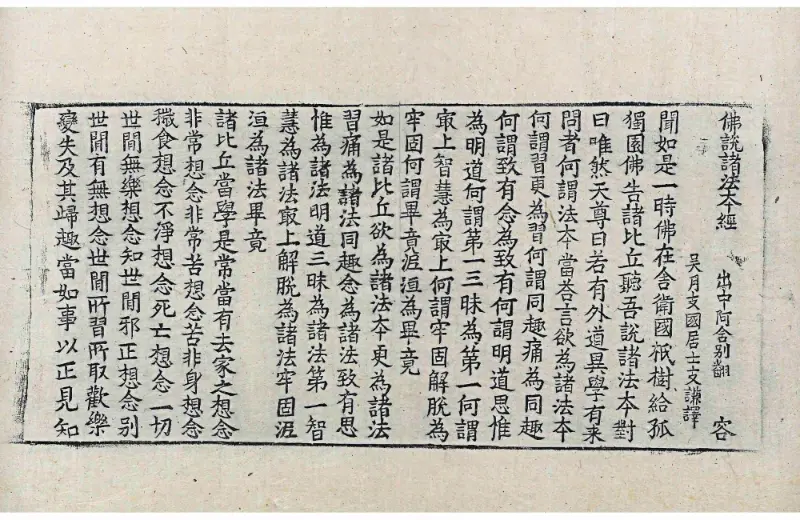 佛說諸法本經　出中阿含別翻　容
吴月支國居士支謙譯
聞如是一時佛在舍衛國祇樹給孤
獨園佛告諸比丘聽吾說諸法本對
曰唯然天尊曰若有外道異學有来
問者何謂法本當荅言欲為諸法本
何謂習更為習何謂同趣痛為同趣
何謂致有念為致有何謂明道思惟
為明道何謂第一三昧為第一何謂
㝡上智慧為㝡上何謂牢固解脫為
牢固何謂畢竟泥洹為畢竟
如是諸比丘欲為諸法本更為諸法
習痛為諸法同趣念為諸法致有思
惟為諸法明道三昧為諸法第一智
慧為諸法㝡上解脫為諸法牢固泥
洹為諸法畢竟
諸比丘當學是常當有去家之想念
非常想念非常苦想念苦非身想念
穢食想念不淨想念死亡想念一切
世間無樂想念知世間邪正想念別
世間有無想念世間所習所取歡樂
變失及其歸趣當如事以正見知